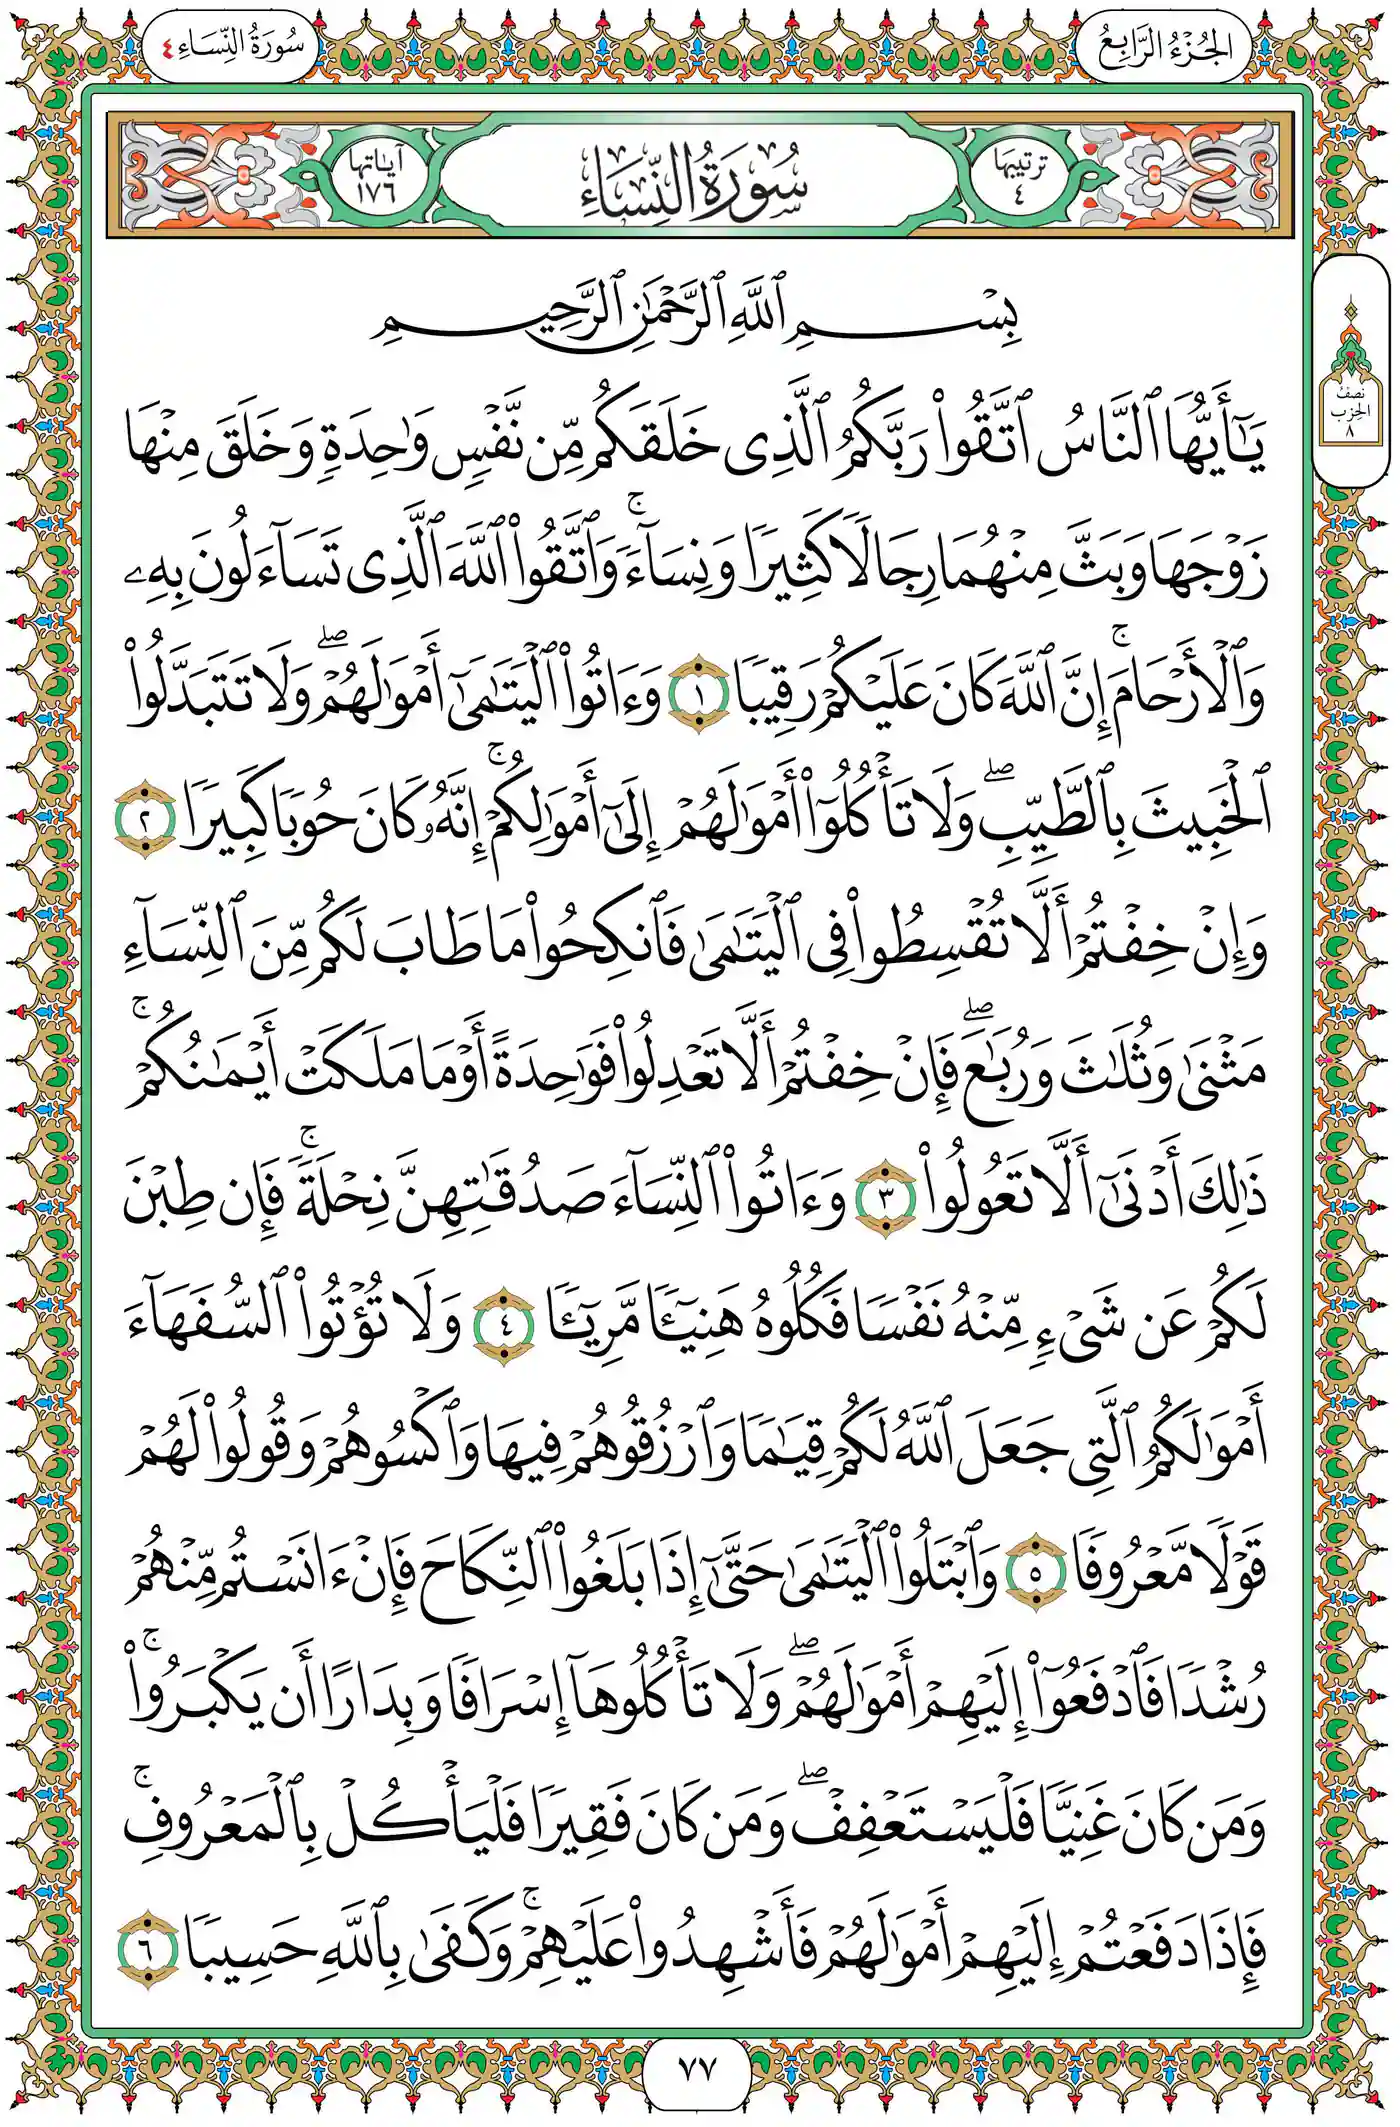 الجُزْءُ الرَّابِعُ
سُورَةُ النِّسَاءِ ٤
ترتيبها
٤
سُورَةُ النِّسَاءِ
آياتها
١٧٦
نصف
الحزب
٨
بِسْمِ ٱللَّهِ ٱلرَّحْمَٰنِ ٱلرَّحِيمِ
يَٰٓأَيُّهَا ٱلنَّاسُ ٱتَّقُوا۟ رَبَّكُمُ ٱلَّذِى خَلَقَكُم مِّن نَّفْسٍ وَٰحِدَةٍ وَخَلَقَ مِنْهَا
زَوْجَهَا وَبَثَّ مِنْهُمَا رِجَالًا كَثِيرًا وَنِسَآءً ۚ وَٱتَّقُوا۟ ٱللَّهَ ٱلَّذِى تَسَآءَلُونَ بِهِۦ
وَٱلْأَرْحَامَ ۚ إِنَّ ٱللَّهَ كَانَ عَلَيْكُمْ رَقِيبًا ١ وَءَاتُوا۟ ٱلْيَتَٰمَىٰٓ أَمْوَٰلَهُمْ ۖ وَلَا تَتَبَدَّلُوا۟
ٱلْخَبِيثَ بِٱلطَّيِّبِ ۖ وَلَا تَأْكُلُوٓا۟ أَمْوَٰلَهُمْ إِلَىٰٓ أَمْوَٰلِكُمْ ۚ إِنَّهُۥ كَانَ حُوبًا كَبِيرًا ٢
وَإِنْ خِفْتُمْ أَلَّا تُقْسِطُوا۟ فِى ٱلْيَتَٰمَىٰ فَٱنكِحُوا۟ مَا طَابَ لَكُم مِّنَ ٱلنِّسَآءِ
مَثْنَىٰ وَثُلَٰثَ وَرُبَٰعَ ۖ فَإِنْ خِفْتُمْ أَلَّا تَعْدِلُوا۟ فَوَٰحِدَةً أَوْ مَا مَلَكَتْ أَيْمَٰنُكُمْ ۚ
ذَٰلِكَ أَدْنَىٰٓ أَلَّا تَعُولُوا۟ ٣ وَءَاتُوا۟ ٱلنِّسَآءَ صَدُقَٰتِهِنَّ نِحْلَةً ۚ فَإِن طِبْنَ
لَكُمْ عَن شَىْءٍ مِّنْهُ نَفْسًا فَكُلُوهُ هَنِيٓـًٔا مَّرِيٓـًٔا ٤ وَلَا تُؤْتُوا۟ ٱلسُّفَهَآءَ
أَمْوَٰلَكُمُ ٱلَّتِى جَعَلَ ٱللَّهُ لَكُمْ قِيَٰمًا وَٱرْزُقُوهُمْ فِيهَا وَٱكْسُوهُمْ وَقُولُوا۟ لَهُمْ
قَوْلًا مَّعْرُوفًا ٥ وَٱبْتَلُوا۟ ٱلْيَتَٰمَىٰ حَتَّىٰٓ إِذَا بَلَغُوا۟ ٱلنِّكَاحَ فَإِنْ ءَانَسْتُم مِّنْهُمْ
رُشْدًا فَٱدْفَعُوٓا۟ إِلَيْهِمْ أَمْوَٰلَهُمْ ۖ وَلَا تَأْكُلُوهَآ إِسْرَافًا وَبِدَارًا أَن يَكْبَرُوا۟ ۚ
وَمَن كَانَ غَنِيًّا فَلْيَسْتَعْفِفْ ۖ وَمَن كَانَ فَقِيرًا فَلْيَأْكُلْ بِٱلْمَعْرُوفِ ۚ
فَإِذَا دَفَعْتُمْ إِلَيْهِمْ أَمْوَٰلَهُمْ فَأَشْهِدُوا۟ عَلَيْهِمْ ۚ وَكَفَىٰ بِٱللَّهِ حَسِيبًا ٦
٧٧